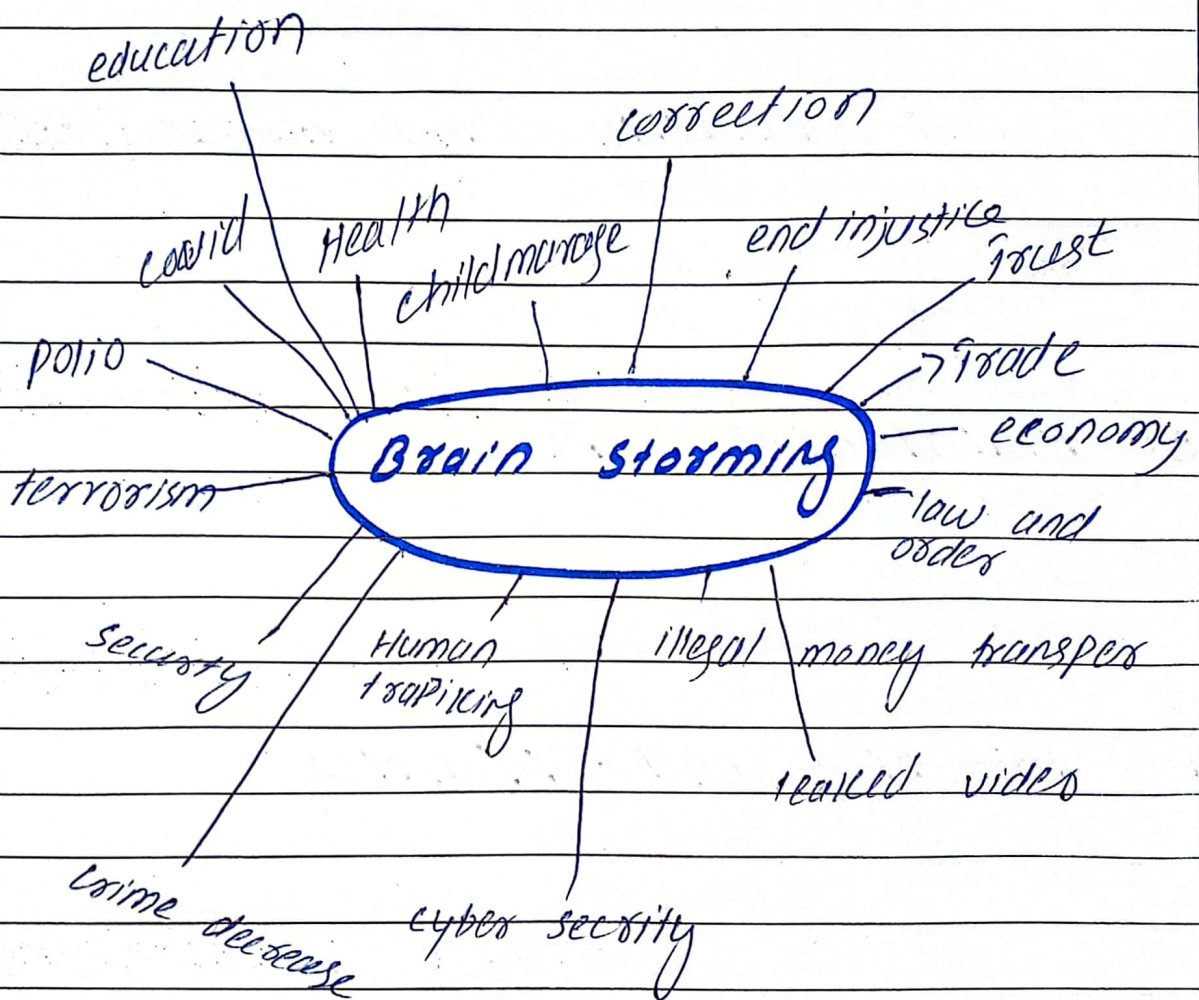 education
correction
covid
Health
child marage
end injustice
Trust
polio
Trade
economy
Brain storming
terrorism
law and
order
securty
Human
trapiking
illegal money transper
leaked video
crime decrease
cyber secrity